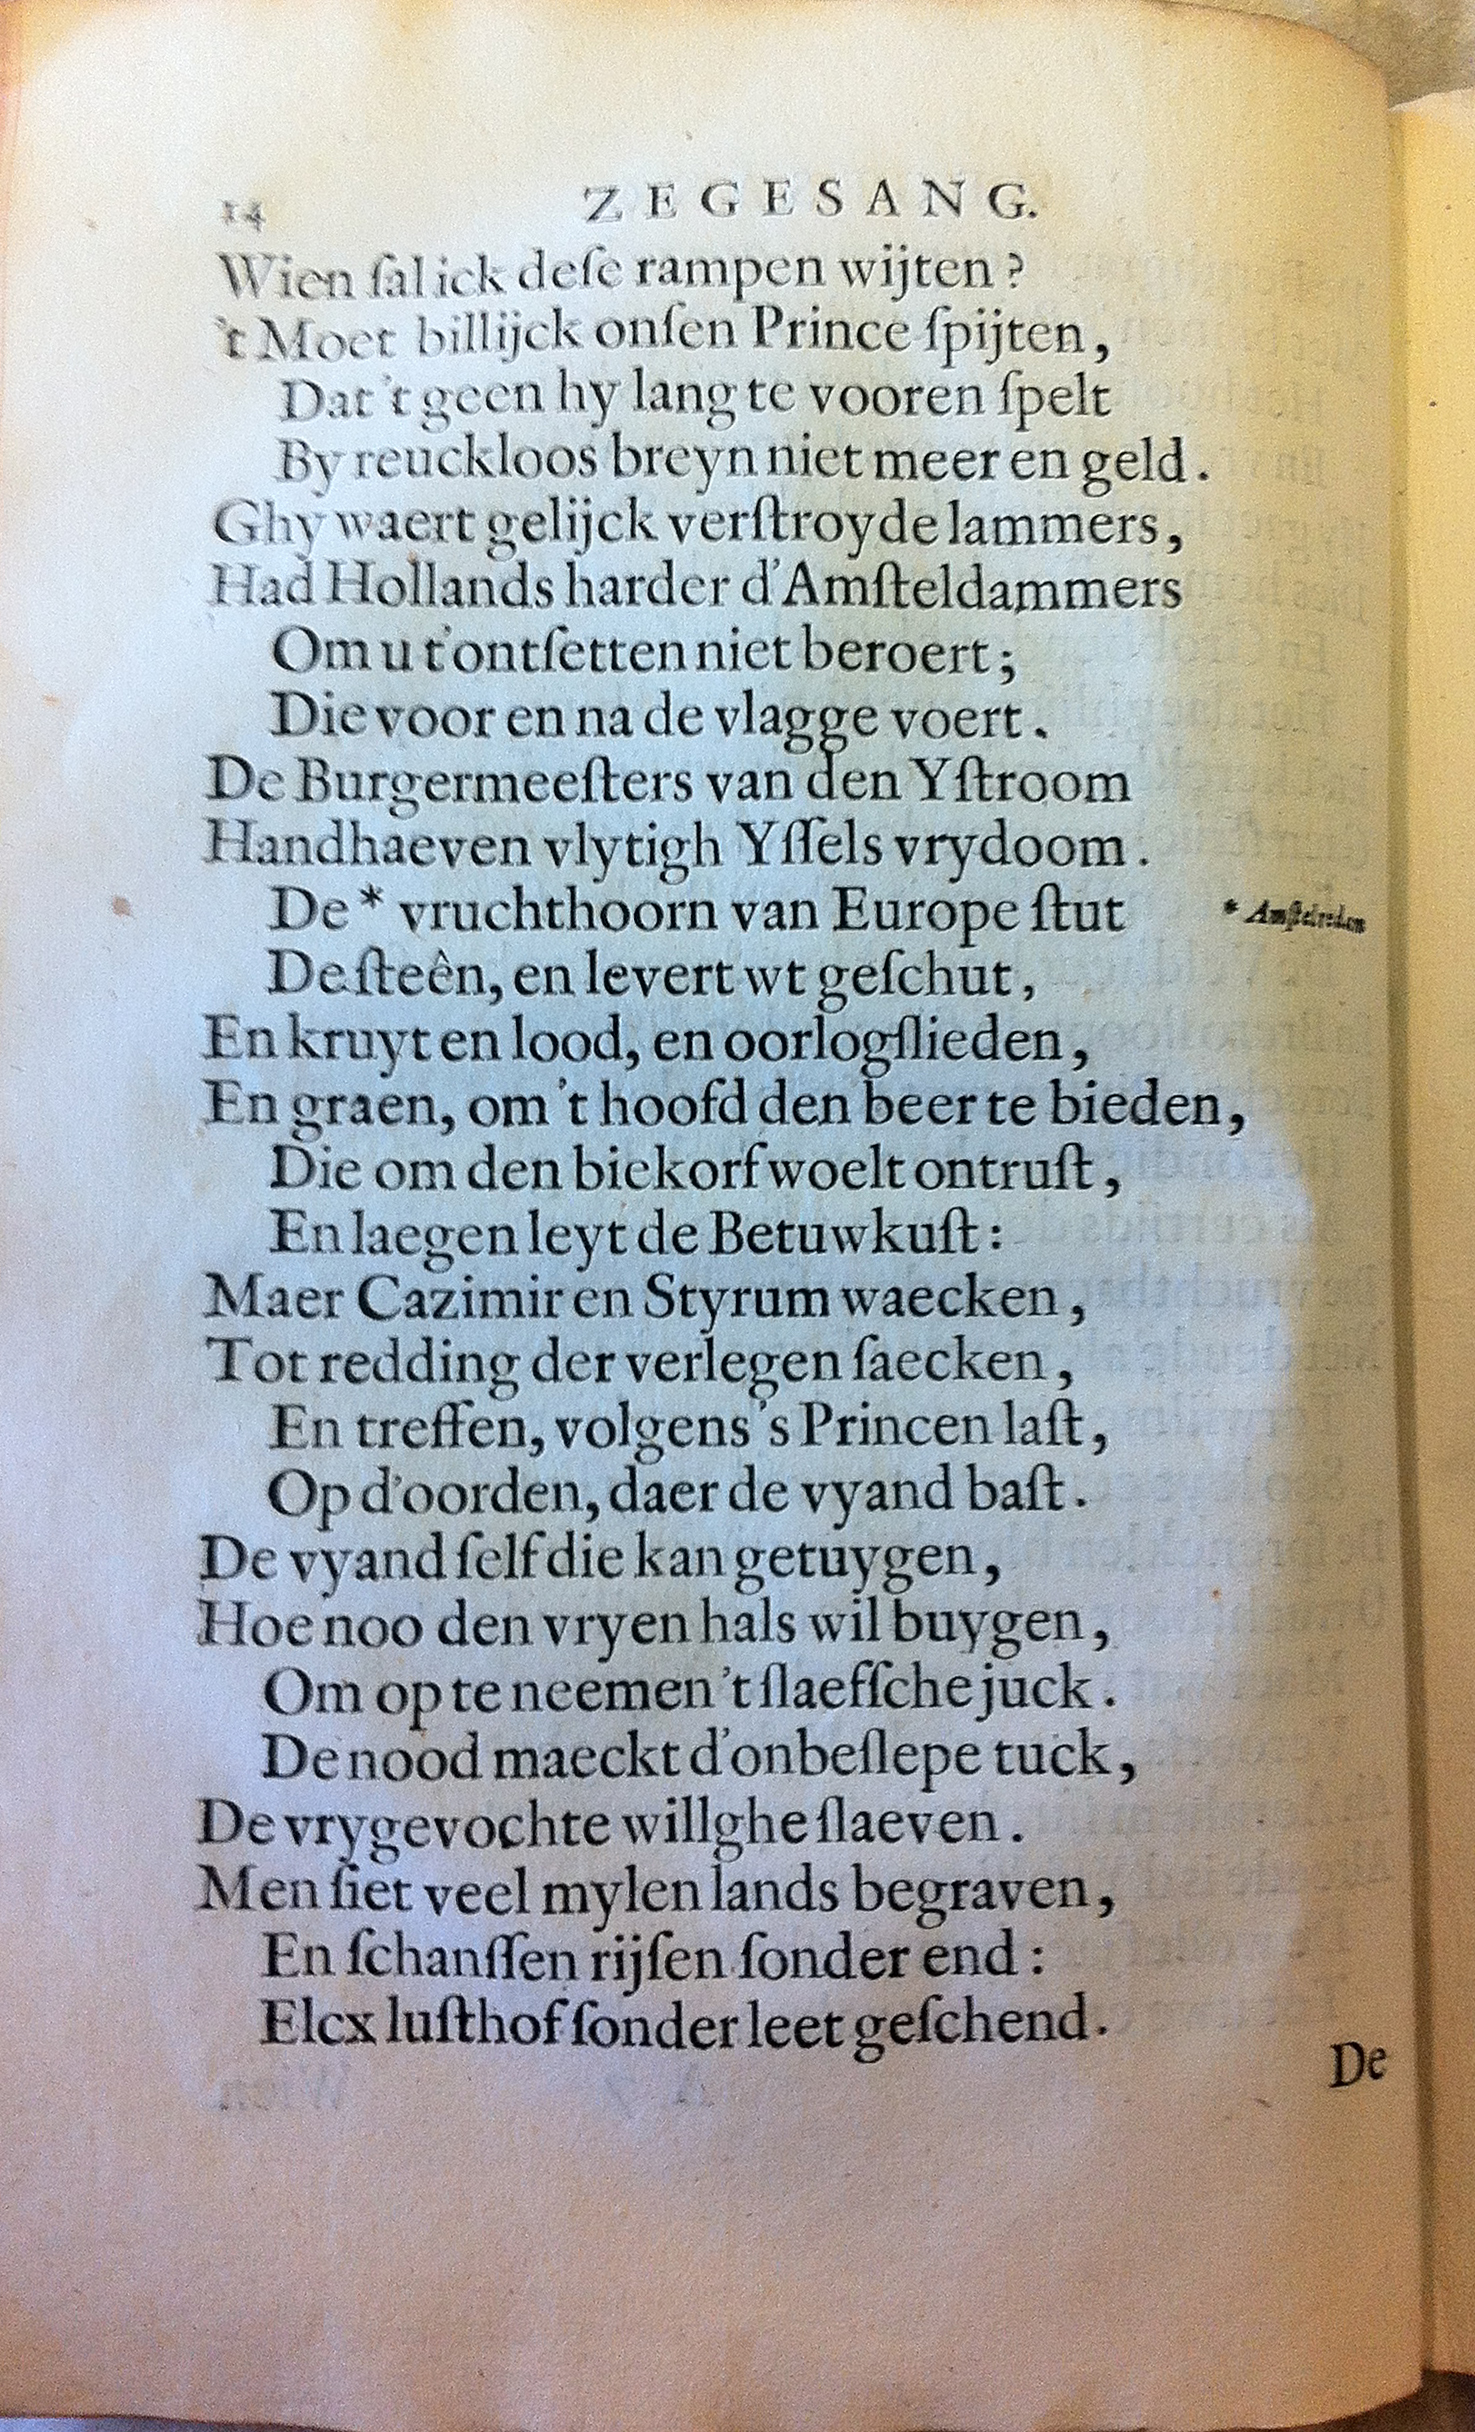 14 ZEGESANG.
Wien ſal ick deſe rampen wijten?
't Moet billijck onſen Prince ſpijten,
Dat 't geen hy lang te vooren ſpelt
By reuckloos breyn niet meer en geld.
Ghy waert gelijck verſtroyde lammers,
Had Hollands harder d'Amſteldammers
Om u t'ontſetten niet beroert;
Die voor en na de vlagge voert.
De Burgermeeſters van den Yſtroom
Handhaeven vlytigh Yſſels vrydoom.
De * vruchthoorn van Europe ſtut * Amſtelredam
De ſteên, en levert wt geſchut,
En kruyt en lood, en oorlogſlieden,
En graen, om 't hoofd den beer te bieden,
Die om den biekorf woelt ontruſt,
En laegen leyt de Betuwkuſt:
Maer Cazimir en Styrum waecken,
Tot redding der verlegen ſaecken,
En treffen, volgens 's Princen laſt,
Op d'oorden, daer de vyand baſt.
De vyand ſelf die kan getuygen,
Hoe noo den vryen hals wil buygen,
Om op te neemen 't ſlaefſche juck.
De nood maeckt d'onbeſlepe tuck,
De vrygevochte willghe ſlaeven.
Men ſiet veel mylen lands begraven,
En ſchanſſen rijſen ſonder end:
Elcx luſthof ſonder leet geſchend.
De